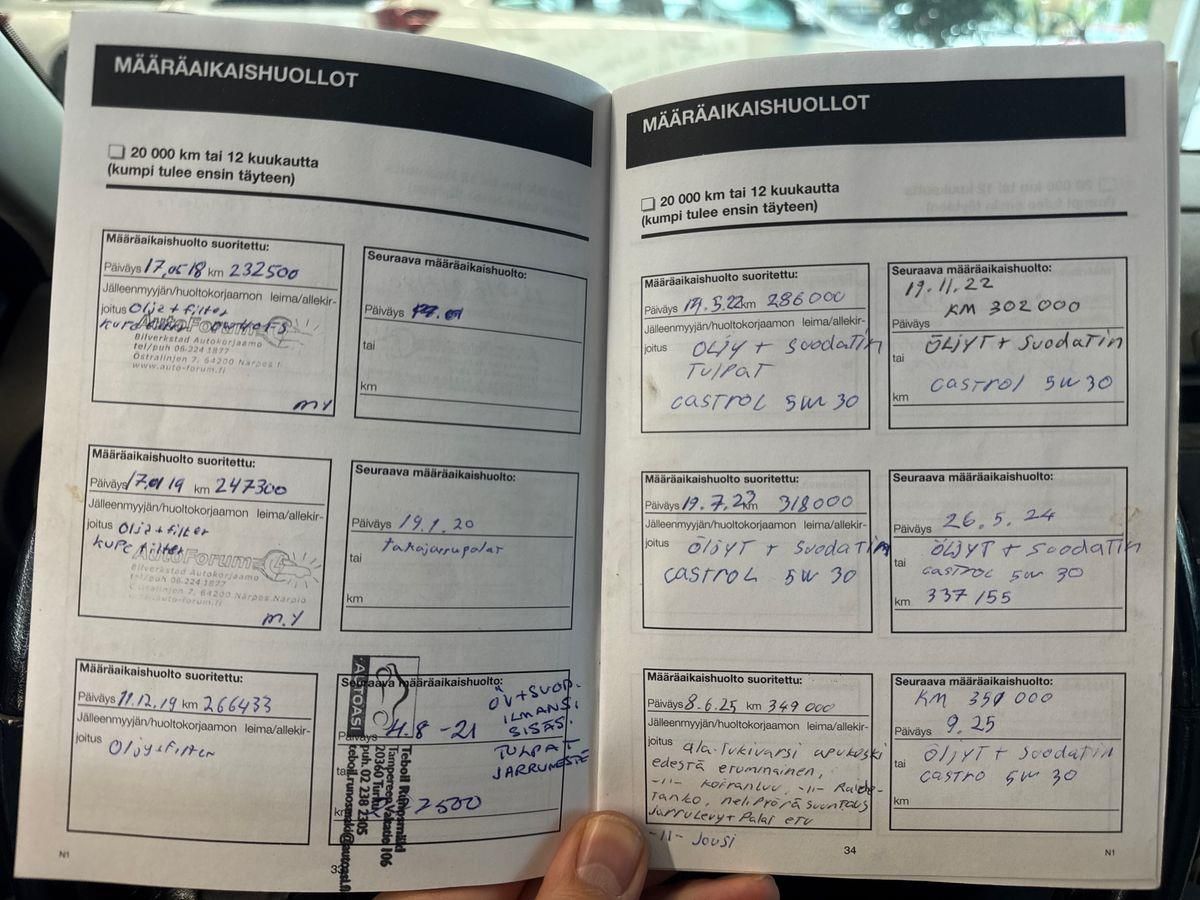 MÄÄRÄAIKAISHUOLLOT
20 000 km tai 12 kuukautta
(kumpi tulee ensin täyteen)
Määräaikaishuolto suoritettu:
Päiväys 17.05 18 km 232500
Jälleenmyyjän/huoltokorjaamon leima/allekir-
joitus Olja + filter
AutoForum
Bilverkstad Autokorjaamo
tel/puh 06-224 1877
Östralinjen 7, 64200 Närpes
www.auto-forum.fi
M.Y
Seuraava määräaikaishuolto:
Päiväys
tai
km
Määräaikaishuolto suoritettu:
Päiväys 17.01 19 km 247300
Jälleenmyyjän/huoltokorjaamon leima/allekir-
joitus Olja + filter
kupe filter
AutoForum
Bilverkstad Autokorjaamo
tel/puh 06-224 1877
64200 Närpes-Närpiö
M.Y
Seuraava määräaikaishuolto:
Päiväys 19.1.20
tai takajarrupalat
km
Määräaikaishuolto suoritettu:
Päiväys 11.12.19 km 266433
Jälleenmyyjän/huoltokorjaamon leima/allekir-
joitus Öljy + filter
Seuraava määräaikaishuolto:
ÖV + SUOD.
ILMANSI
SISÄS.
TULPAT
JARRUNESTE
Päiväys 4.8 -21
tai
km
AUTOASI
Teboil Runosmäki
Tampereen Valtatie 106
20360 Turku
puh. 02 238 2305
teboil.runosmaki@autoasi.fi
N1
MÄÄRÄAIKAISHUOLLOT
20 000 km tai 12 kuukautta
(kumpi tulee ensin täyteen)
Määräaikaishuolto suoritettu:
Päiväys 19.5.22 km 286000
Jälleenmyyjän/huoltokorjaamon leima/allekir-
joitus ÖLJY + SUODATIN
TULPAT
CASTROL 5W 30
Seuraava määräaikaishuolto:
19.11.22
KM 302 000
Päiväys
ÖLJYT + SUODATIN
tai
CASTROL 5W 30
km
Määräaikaishuolto suoritettu:
Päiväys 19.7.23 km 318000
Jälleenmyyjän/huoltokorjaamon leima/allekir-
joitus ÖLJYT + SUODATIN
CASTROL 5W 30
Seuraava määräaikaishuolto:
Päiväys 26.5.24
ÖLJYT + SUODATIN
tai CASTROL 5W 30
km 337155
Määräaikaishuolto suoritettu:
Päiväys 8.6.25 km 349 000
Jälleenmyyjän/huoltokorjaamon leima/allekir-
joitus ala-Tukivarsi apukuski
edestä etummainen,
-11- koiranluu, -11- Raide-
Tanko, nelipyöräsuuntaus
Jarrulevyt + Palat etu
-11- Jousi
Seuraava määräaikaishuolto:
KM 351 000
Päiväys 9.25
tai ÖLJYT + SUODATIN
CASTRO 5W 30
km
34
N1